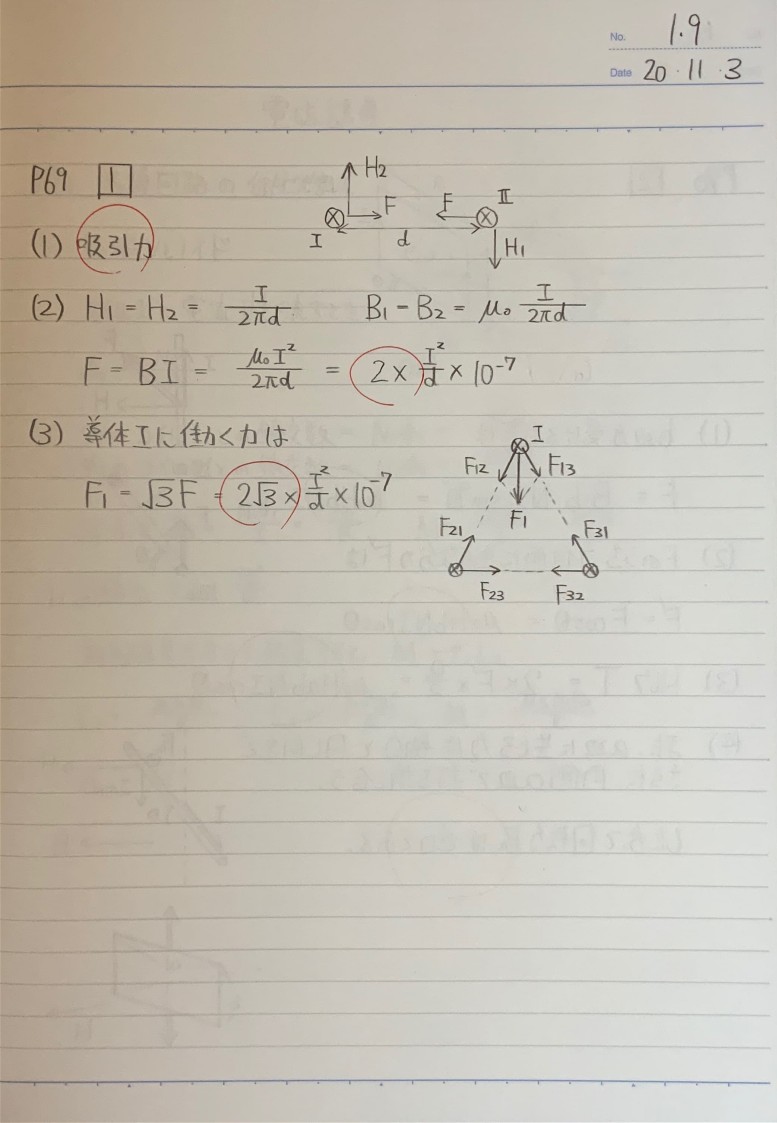 No. 1.9
Date 20・11・3
P69 1
H2
F F II
I d H1
(1) 吸引力
(2) H1 = H2 = I/2πd B1 - B2 = μ0 I/2πd
F = BI = μ0I²/2πd = 2× I²/d ×10⁻⁷
(3) 導体Iに働く力は
F1 = √3F = 2√3× I²/d ×10⁻⁷
I
F12 F13
F1
F21 F31
F23 F32